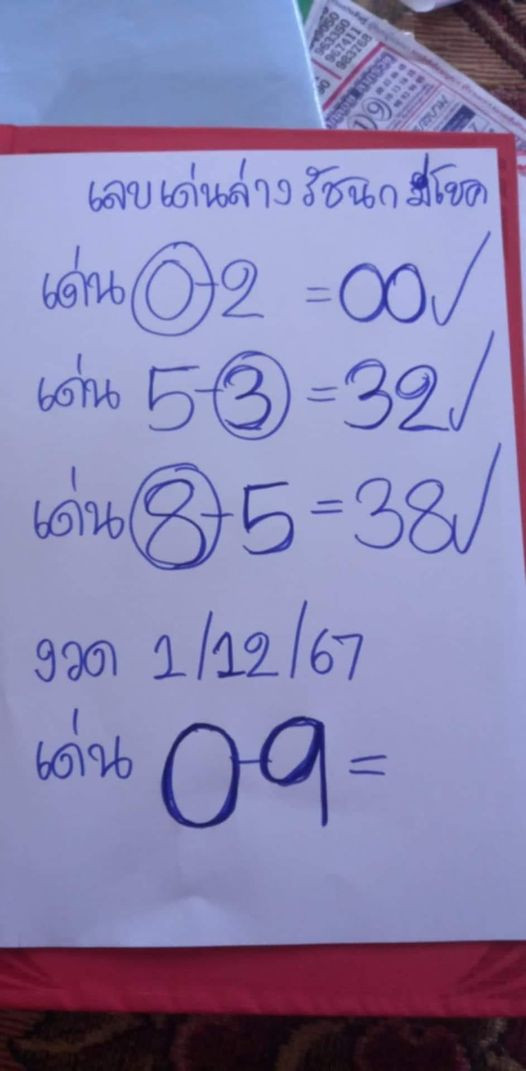 963350
967411
983768
เลขเด่นล่าง รัชนก มีโชค
เด่น 0-2 = 00✓
เด่น 5-3 = 32✓
เด่น 8-5 = 38✓
งวด 1/12/67
เด่น 0-9 =